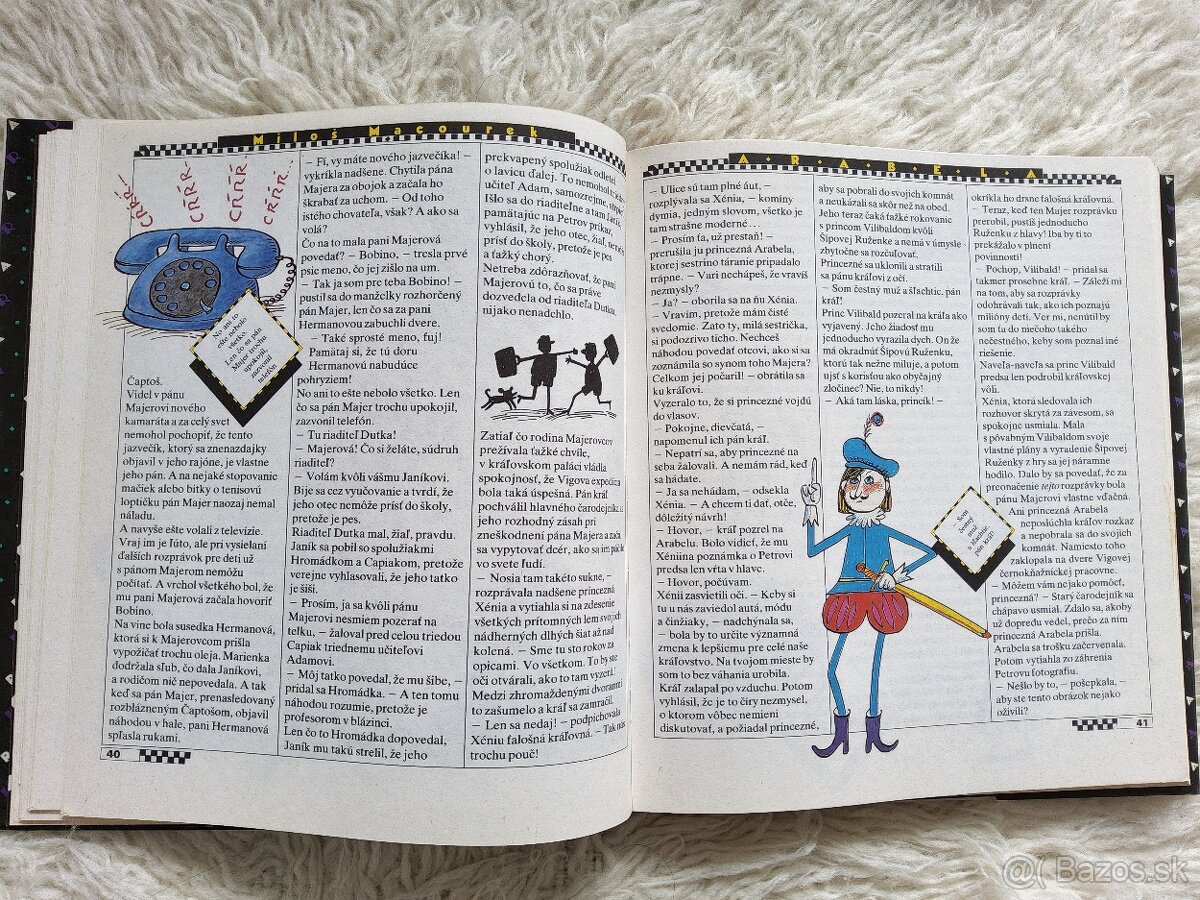 Miloš Macourek
CŔŔŔ-
CŔŔŔ
CŔŔŔ
CŔŔŔ.
No ani to
ešte nebolo
všetko.
Len čo sa pán
Majer trochu
upokojil,
zazvonil
telefón
Čaptoš.
Videl v pánu
Majerovi nového
kamaráta a za celý svet
nemohol pochopiť, že tento
jazvečík, ktorý sa znenazdajky
objavil v jeho rajóne, je vlastne
jeho pán. A na nejaké stopovanie
mačiek alebo bitky o tenisovú
loptičku pán Majer naozaj nemal
náladu.
A navyše ešte volali z televízie.
Vraj im je ľúto, ale pri vysielaní
ďalších rozprávok pre deti už
s pánom Majerom nemôžu
počítať. A vrchol všetkého bol, že
mu pani Majerová začala hovoriť
Bobino.
Na vine bola susedka Hermanová,
ktorá si k Majerovcom prišla
vypožičať trochu oleja. Marienka
dodržala sľub, čo dala Janíkovi,
a rodičom nič nepovedala. A tak
keď sa pán Majer, prenasledovaný
rozbláznených Čaptošom, objavil
náhodou v hale, pani Hermanová
spľasla rukami.
40
– Fí, vy máte nového jazvečíka! –
vykríkla nadšene. Chytila pána
Majera za obojok a začala ho
škrabať za uchom. – Od toho
istého chovateľa, však? A ako sa
volá?
Čo na to mala pani Majerová
povedať? – Bobino, – tresla prvé
psie meno, čo jej zišlo na um.
– Tak ja som pre teba Bobino! –
pustil sa do manželky rozhorčený
pán Majer, len čo sa za pani
Hermanovou zabuchli dvere.
– Také sprosté meno, fuj!
Pamätaj si, že tú doru
Hermanovú nabudúce
pohryziem!
No ani to ešte nebolo všetko. Len
čo sa pán Majer trochu upokojil,
zazvonil telefón.
– Tu riaditeľ Dutka!
– Majerová! Čo si želáte, súdruh
riaditeľ?
– Volám kvôli vášmu Janíkovi.
Bije sa cez vyučovanie a tvrdí, že
jeho otec nemôže prísť do školy,
pretože je pes.
Riaditeľ Dutka mal, žiaľ, pravdu.
Janík sa pobil so spolužiakmi
Hromádkom a Capiakom, pretože
verejne vyhlasovali, že jeho tatko
je šiši.
– Prosím, ja sa kvôli pánu
Majerovi nesmiem pozerať na
telku, – žaloval pred celou triedou
Capiak triednemu učiteľovi
Adamovi.
– Môj tatko povedal, že mu šibe, –
pridal sa Hromádka. – A ten tomu
náhodou rozumie, pretože je
profesorom v blázinci.
Len čo to Hromádka dopovedal,
Janík mu takú strelil, že jeho
prekvapený spolužiak odletel
o lavicu ďalej. To nemohol
učiteľ Adam, samozrejme,
Išlo sa do riaditeľne a tam
pamätajúc na Petrov príkaz,
vyhlásil, že jeho otec, žiaľ,
prísť do školy, pretože je pes
a ťažký chorý.
Netreba zdôrazňovať, že pani
Majerovú to, čo sa práve
dozvedela od riaditeľa Dutku,
nijako nenadchlo.
Zatiaľ čo rodina Majerovcov
prežívala ťažké chvíle,
v kráľovskom paláci vládla
spokojnosť, že Vigova expedícia
bola taká úspešná. Pán kráľ
pochválil hlavného čarodejníka
jeho rozhodný zásah pri
zneškodnení pána Majera a
sa vypytovať dcér, ako sa im páči
vo svete ľudí.
– Nosia tam takéto sukne, –
rozprávala nadšene princezná
Xénia a vytiahla si na zdesenie
všetkých prítomných lem svojich
nádherných dlhých šiat až nad
kolená. – Sme tu sto rokov za
opicami. Vo všetkom. To by ste
oči otvárali, ako to tam vyzerá!
Medzi zhromaždenými dvoranmi
to zašumelo a kráľ sa zamračil.
– Len sa nedaj! – podpichovala
Xéniu falošná kráľovná. – Tak
trochu pouč!
A·R·A·B·E·L·A
– Ulice sú tam plné áut, –
rozplývala sa Xénia, – komíny
dymia, jedným slovom, všetko je
tam strašne moderné…
– Prosím ťa, už prestaň! –
prerušila ju princezná Arabela,
ktorej sestrino táranie pripadalo
trápne. – Vari nechápeš, že vravíš
nezmysly?
– Ja? – oborila sa na ňu Xénia.
– Vravím, pretože mám čisté
svedomie. Zato ty, milá sestrička,
si podozrivo ticho. Nechceš
náhodou povedať otcovi, ako si sa
zoznámila so synom toho Majera?
Celkom jej počaril! – obrátila sa
ku kráľovi.
Vyzeralo to, že si princezné vojdú
do vlasov.
– Pokojne, dievčatá, –
napomenul ich pán kráľ.
– Nepatrí sa, aby princezné na
seba žalovali. A nemám rád, keď
sa hádate.
– Ja sa nehádam, – odsekla
Xénia. – A chcem ti dať, otče,
dôležitý návrh!
– Hovor, – kráľ pozrel na
Arabelu. Bolo vidieť, že mu
Xéniina poznámka o Petrovi
predsa len vŕta v hlave.
– Hovor, počúvam.
Xénii zasvietili oči. – Keby si
tu u nás zaviedol autá, módu
a činžiaky, – nadchýnala sa,
– bola by to určite významná
zmena k lepšiemu pre celé naše
kráľovstvo. Na tvojom mieste by
som to bez váhania urobila.
Kráľ zalapal po vzduchu. Potom
vyhlásil, že je to číry nezmysel,
o ktorom vôbec nemieni
diskutovať, a požiadal princezné,
aby sa pobrali do svojich komnát
a neukázali sa skôr než na obed.
Jeho teraz čaká ťažké rokovanie
s princom Vilibaldom kvôli
Šípovej Ruženke a nemá v úmysle
zbytočne sa rozčuľovať.
Princezné sa uklonili a stratili
sa pánu kráľovi z očí.
– Som čestný muž a šľachtic, pán
kráľ!
Princ Vilibald pozeral na kráľa ako
vyjavený. Jeho žiadosť mu
jednoducho vyrazila dych. On že
má okradnúť Šípovú Ruženku,
ktorú tak nežne miluje, a potom
ujsť s korisťou ako obyčajný
zločinec? Nie, to nikdy!
– Aká tam láska, princík! –
Som
čestný
muž
a šľachtic,
pán kráľ!
okríkla ho drsne falošná kráľovná.
– Teraz, keď ten Majer rozprávku
prerobil, pustíš jednoducho
Ruženku z hlavy! Iba by ti to
prekážalo v plnení
povinností!
– Pochop, Vilibald! – pridal sa
takmer prosebne kráľ. – Záleží mi
na tom, aby sa rozprávky
odohrávali tak, ako ich poznajú
milióny detí. Ver mi, nenútil by
som ťa do niečoho takého
nečestného, keby som poznal iné
riešenie.
Naveľa-naveľa sa princ Vilibald
predsa len podrobil kráľovskej
vôli.
Xénia, ktorá sledovala ich
rozhovor skrytá za závesom, sa
spokojne usmiala. Mala
s pôvabným Vilibaldom svoje
vlastné plány a vyradenie Šípovej
Ruženky z hry sa jej náramne
hodilo. Dalo by sa povedať, že za
preonačenie tejto rozprávky bola
pánu Majerovi vlastne vďačná.
Ani princezná Arabela
neposlúchla kráľov rozkaz
a nepobrala sa do svojich
komnát. Namiesto toho
zaklopala na dvere Vigovej
černokňažníckej pracovne.
– Môžem vám nejako pomôcť,
princezná? – Starý čarodejník sa
chápavo usmial. Zdalo sa, akoby
už dopredu vedel, prečo za ním
princezná Arabela prišla.
Arabela sa trošku začervenala.
Potom vytiahla zo záhrenia
Petrovu fotografiu.
– Nešlo by to, – pošepkala, –
aby ste tento obrázok nejako
oživili?
41
Bazos.sk